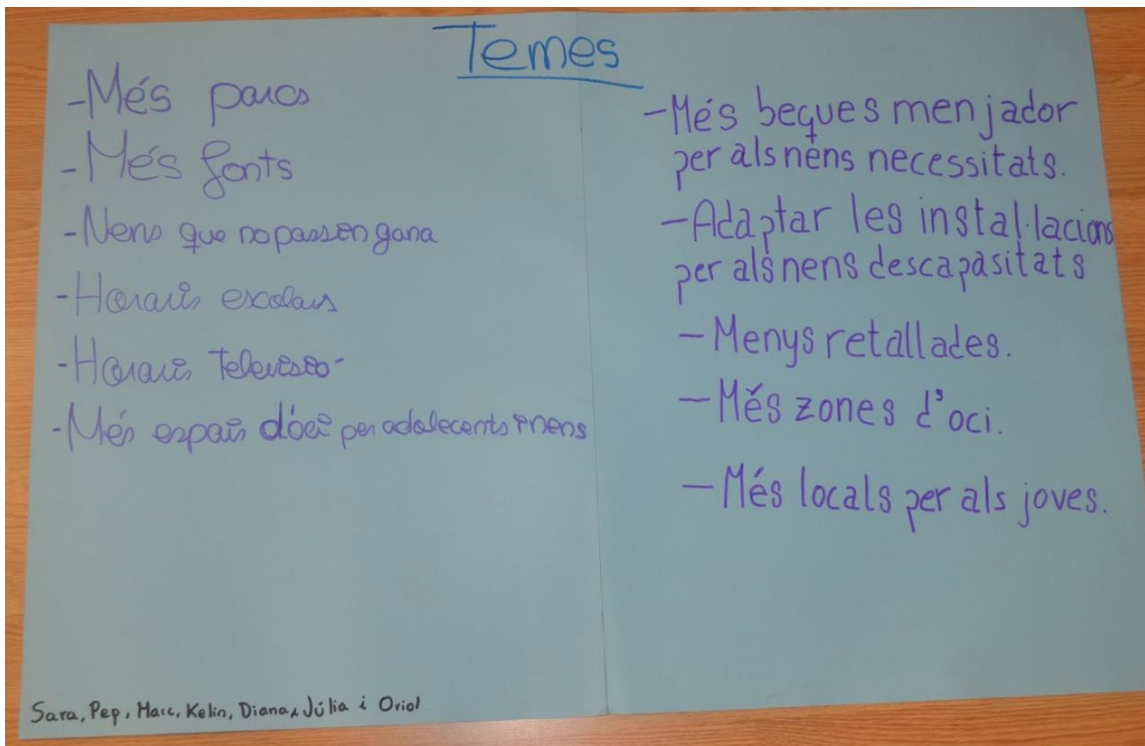 Temes
-Més parcs
-Més fonts
-Nens que no passen gana
-Horaris escolars
-Horaris televisió-
-Més espais d'oci per adolecents i nens
-Més beques menjador
per als nens necessitats.
-Adaptar les instal·lacions
per als nens descapasitats
-Menys retallades.
-Més zones d'oci.
-Més locals per als joves.
Sara, Pep, Marc, Kelin, Diana, Júlia i Oriol